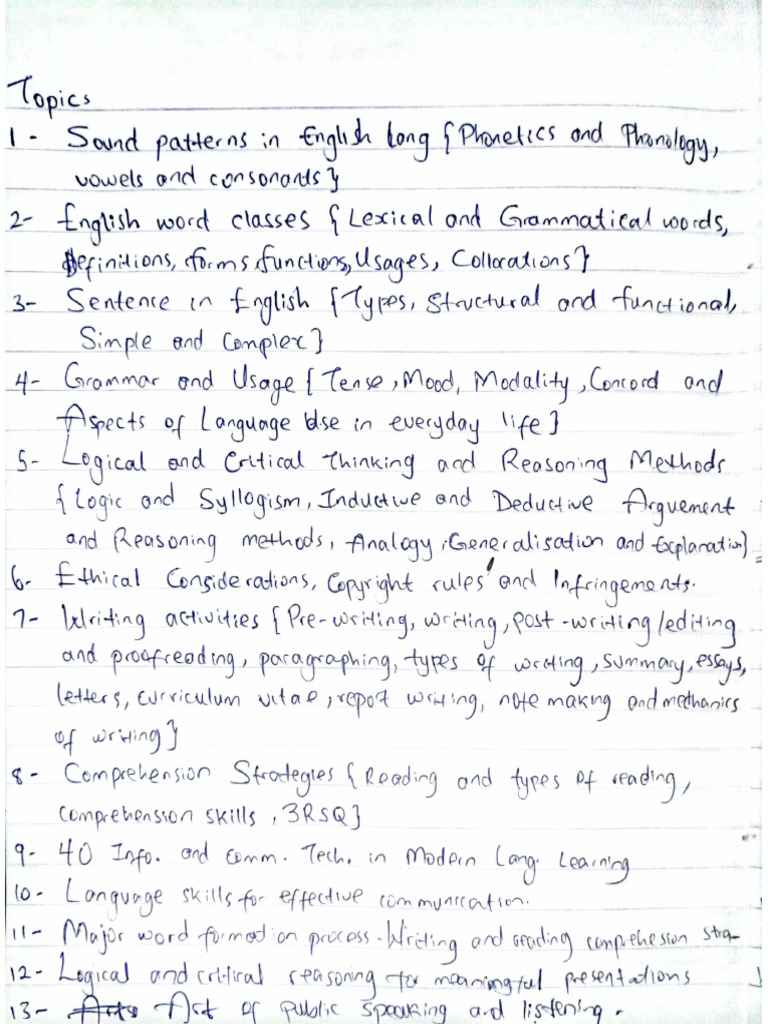 Topics
1- Sound patterns in English Long {Phonetics and Phonology,
vowels and consonants}
2- English word classes {Lexical and Grammatical words,
Definitions, forms, functions, Usages, Collocations}
3- Sentence in English {Types, Structural and functional,
Simple and Complex}
4- Grammar and Usage {Tense, Mood, Modality, Concord and
Aspects of Language Use in everyday life}
5- Logical and Critical Thinking and Reasoning Methods
{Logic and Syllogism, Inductive and Deductive Arguement
and Reasoning methods, Analogy, Generalisation and Explanation}
6- Ethical Considerations, Copyright rules and Infringements.
7- Writing activities {Pre-writing, writing, post-writing/editing
and proofreading, paragraphing, types of writing, summary, essays,
letters, curriculum vitae, report writing, note making and mechanics
of writing}
8- Comprehension Strategies {Reading and types of reading,
comprehension skills, 3RSQ}
9- 40 Info. and comm. Tech. in Modern Lang. Learning
10- Language skills for effective communication.
11- Major word formation process-Writing and reading comprehesion stra-
12- Logical and critical reasoning for meaningful presentations
13- Art of public speaking and listening.